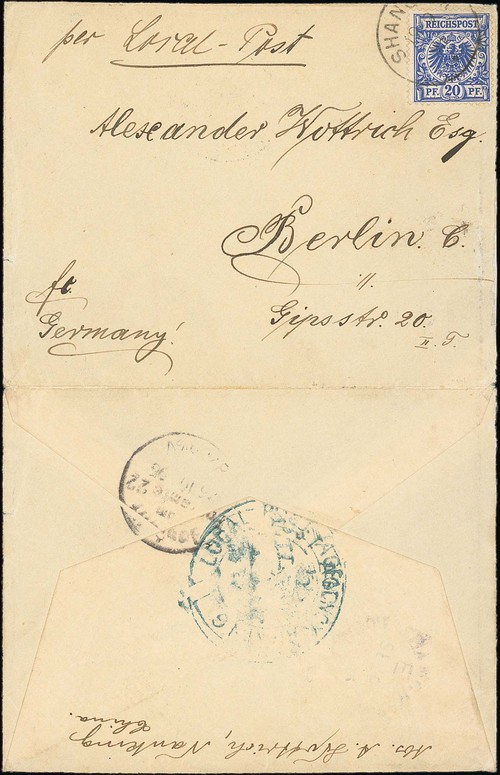 per Local-Post
SHAN
REICHSPOST
PF. 20 PF.
Alexander Wottrich Esq.
Berlin. C.
Gipsstr. 20.
II. T.
fr.
Germany!
LOCAL POSTAL AGENCY
Jos. A. Wottrich, Nanking
China.